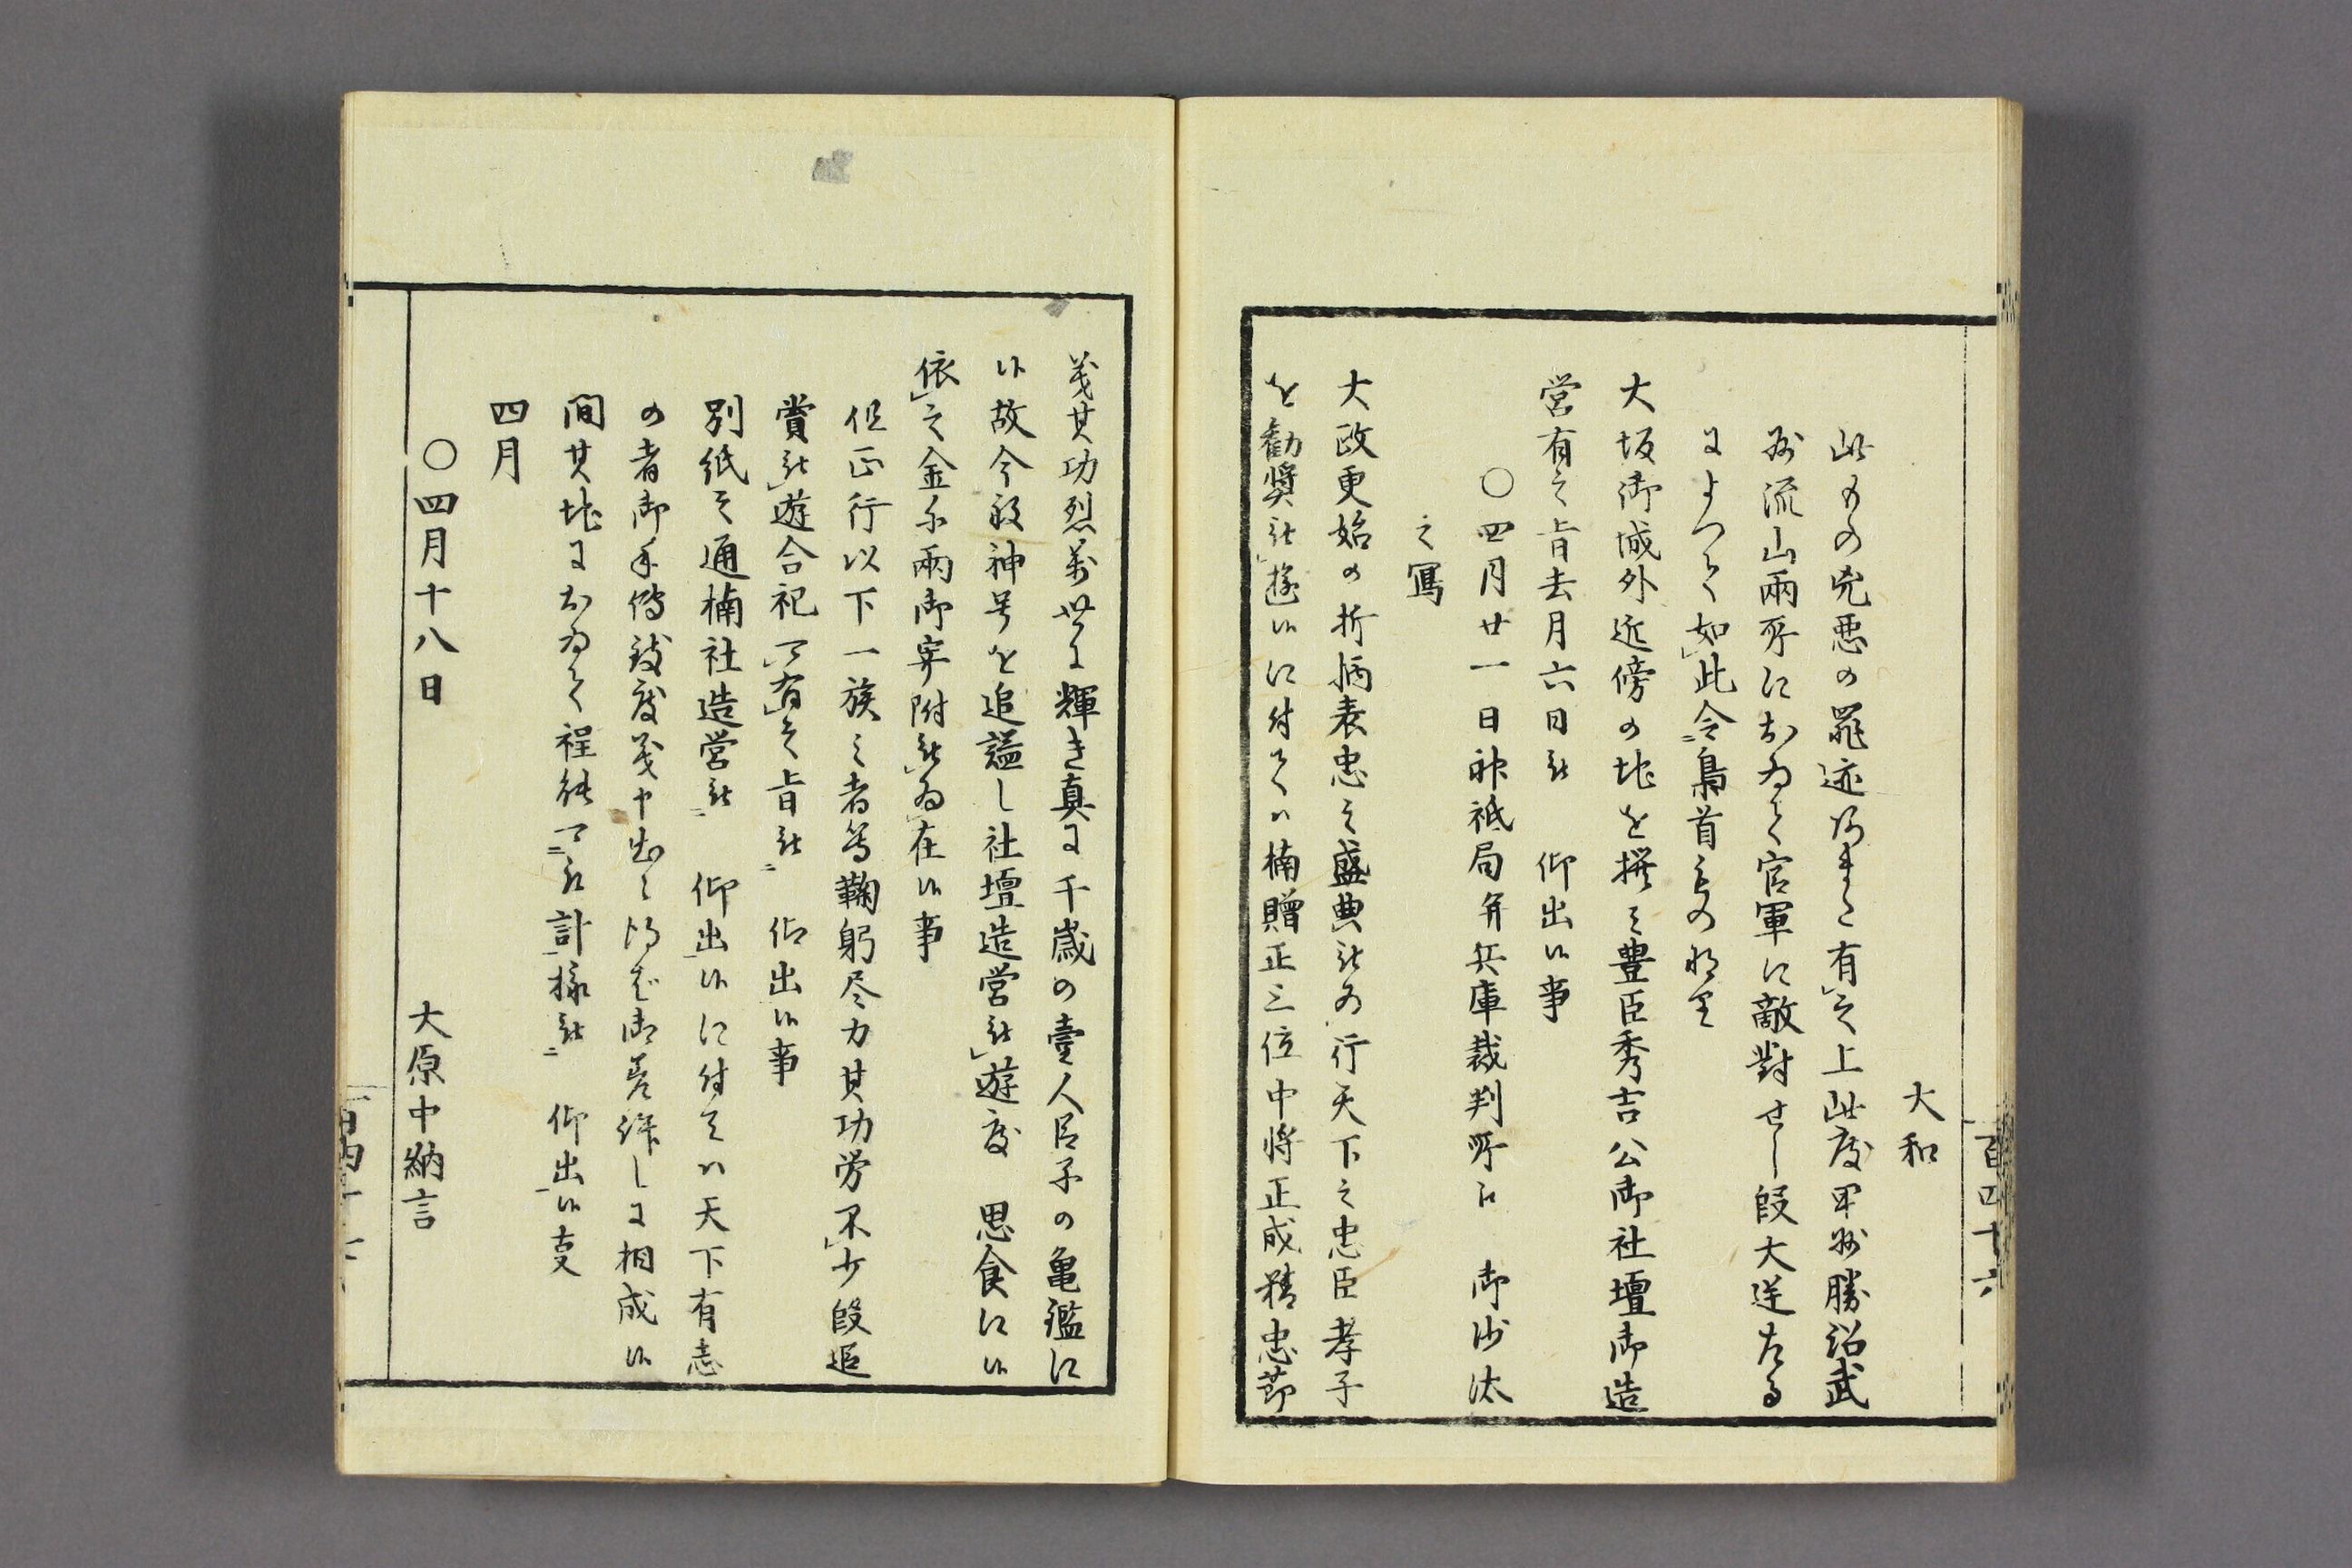 百四十六
大和
此もの兇悪の罪迹数多有之上此度甲州勝沼武
州流山両所におゐて官軍に敵對せし段大逆たる
によつて如此令梟首もの也
大坂御城外近傍の地を撰ミ豊臣秀吉公御社壇御造
営有之旨去月六日被　仰出候事
○四月廿一日神祇局并兵庫裁判所江　御沙汰
之寫
大政更始の折柄表忠之盛典被為行天下之忠臣孝子
を勧奨被遊候に付ては楠贈正三位中将正成精忠節
義其功烈萬世に輝き真に千歳の壹人臣子の亀鑑に
候故今般神号を追謚し社壇造営被遊度　思食に候
依之金千両御寄附被為在候事
但正行以下一族之者等鞠躬尽力其功労不少段追
賞被遊合祀可有之旨被　仰出候事
別紙之通楠社造営被　仰出候に付ては天下有志
の者御手傳致度義申出候得ば御差許しに相成候
間其地におゐて程能可取計様被　仰出候事
四月
○四月十八日
大原中納言